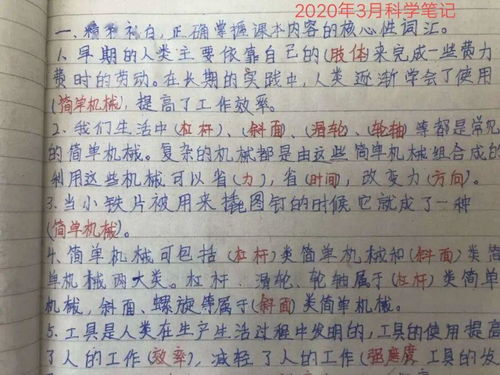 2020年3月科学笔记
一、精彩补白,正确掌握课本内容的核心性词汇。
1.早期的人类主要依靠自己的(肢体)来完成一些费力
费时的劳动。在长期的实践中,人类逐渐学会了使用
(简单机械),提高了工作效率。
2.我们生活中(杠杆)、(斜面)、(滑轮)、(轮轴)等都是常见
的简单机械。复杂的机械都是由这些简单机械组合成的
利用这些机械可以省(力),省(时间),改变力(方向)。
3.当小铁片被用来撬图钉的时候它就成了一种
(简单机械)。
4.简单机械可包括(杠杆)类简单机械和(斜面)类简
单机械两大类。杠杆、滑轮、轮轴属于(杠杆)类简单
机械,斜面、螺旋等属于(斜面)类简单机械。
5.工具是人类在生产生活过程中发明的,工具的使用提高
了人的工作(效率),减轻了人的工作(强度 工具的发